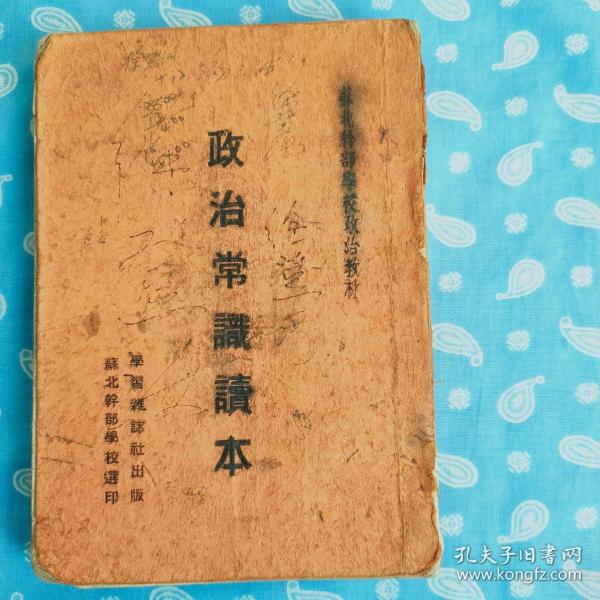 蘇北幹部學校政治教材
政治常識讀本
學習雜誌社出版
蘇北幹部學校選印
孔夫子旧书网
www.kongfz.com